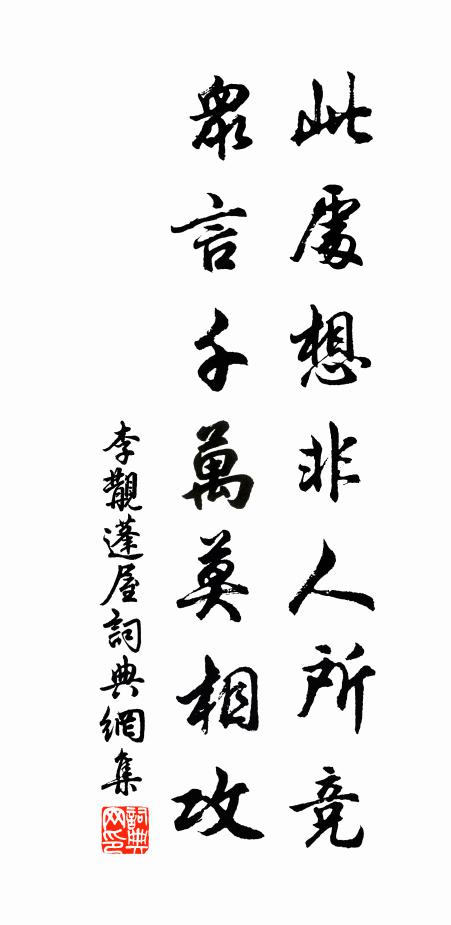 此處想非人所竞
眾言千萬莫相攻
李覯蓬屋詞典網集
詞典网印